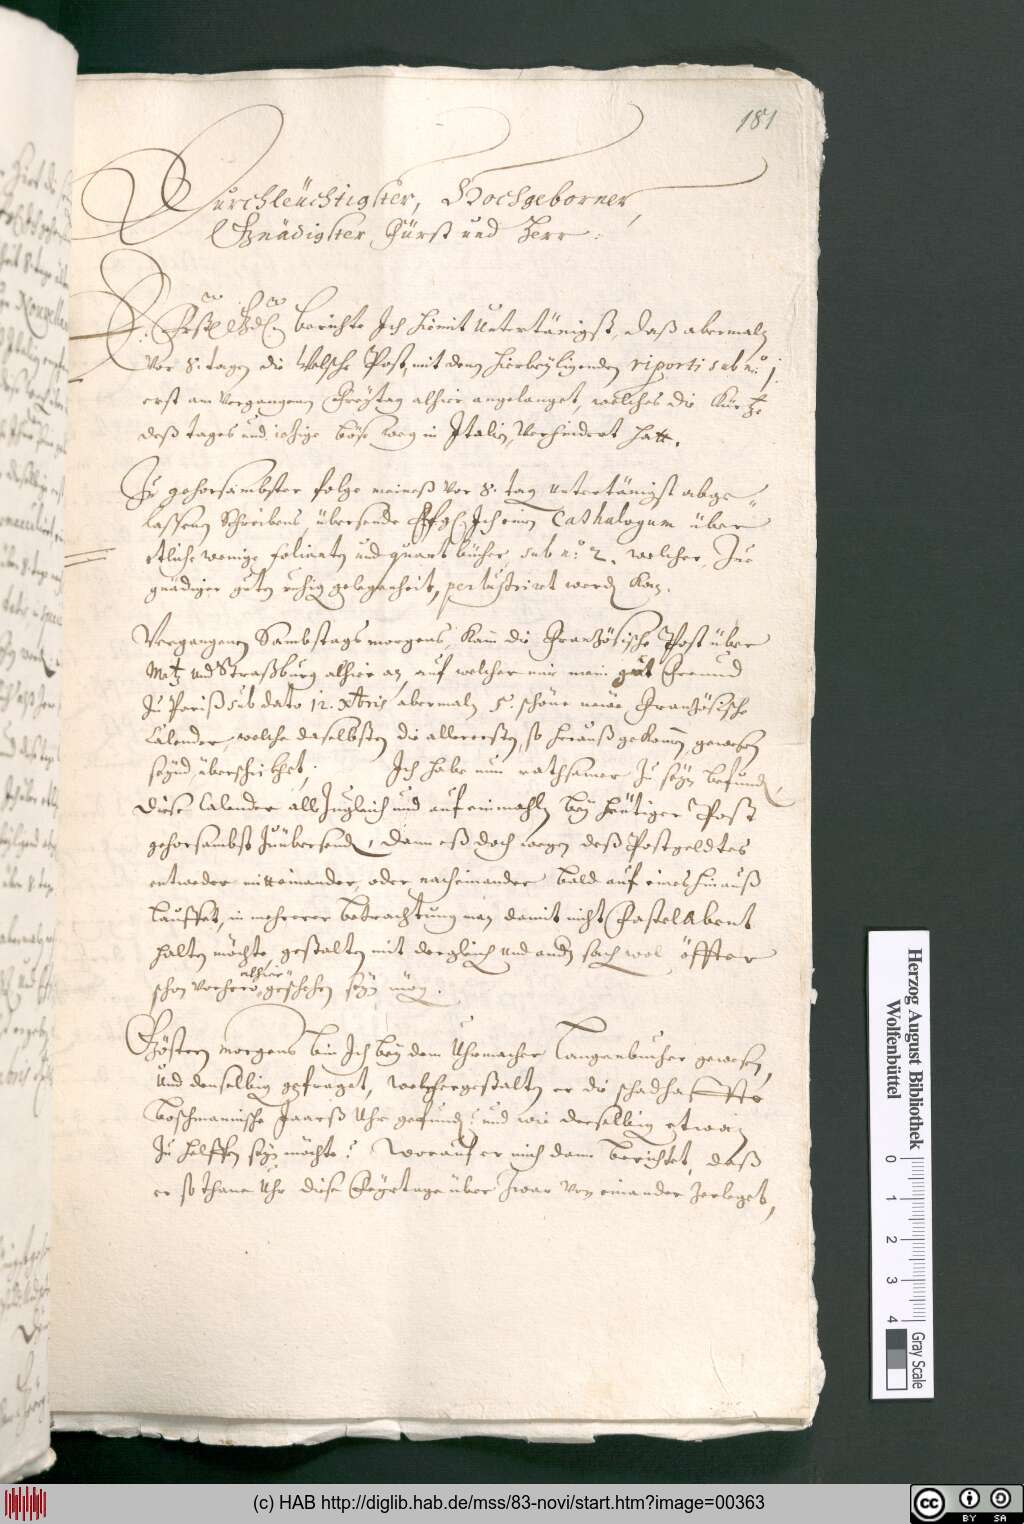 181
Durchleüchtigster, Hochgeborner,
Gnädigster Fürst und Herr.
berichte Ich hiemit Untertänigst, daß abermaln
vor 8. tagen die Welsche Post, mit dem hierbeyligenden riporti sub n.º 1.
erst am vergangenen Freytag alhier angelanget, welches die Kürtze
deß tages und ietzige böse weg in Italien, verhindert hatt.
Zu gehorsambster folge meineß vor 8. tag untertänigst abge-
lassenen Schreibens übersende Ich einen Cathalogum über
etliche wenige folianten und quart bücher, sub n.º 2. welcher, Zue
gnädiger guten ruhig gelegenheit, perlustriret werden kan.
Vergangenen Sambstags morgens, kam die Frantzösische Post über
Metz und Straßburg alhier an, auf welcher mir mein gut Freund
zu Pariß sub dato 12. Xbris abermaln 5. schöne newe Frantzösische
Calender, welche daselbsten die allerersten, so herauß gekommen, gewesen
seynd, überschicket; Ich habe nun rathsamer zu seyn befunden,
diese Calender alle Zugleich und auf einmahl bey heütiger Post
gehorsambst zuübersenden, dann eß doch wegen deß Postgeldtes
entweder mitteinander, oder nacheinander bald auf eines hinauß
lauffet, in mehrerer betrachtung man damit nicht Fastel Abent
halten möchte, gestalten mit dergleich und andern sach wol öffter
schon vorhero alhier geschehen seyn mag.
Gestern morgens bin Ich bey dem Uhrmacher Langenbucher gewesen,
und denselbig gefraget, welchergestalten er die schadhaffte
Boschmannische Jaarß Uhr gefunden? und wie derselbig etwan
zu helffen seyn möchte? Worauf er mich dann berichtet, daß
er so thane Uhr diese Feyrtage über zwar von einander zerleget,
Herzog August Bibliothek
Wolfenbüttel
0 1 2 3 4
Gray Scale
(c) HAB http://diglib.hab.de/mss/83-novi/start.htm?image=00363
cc BY SA